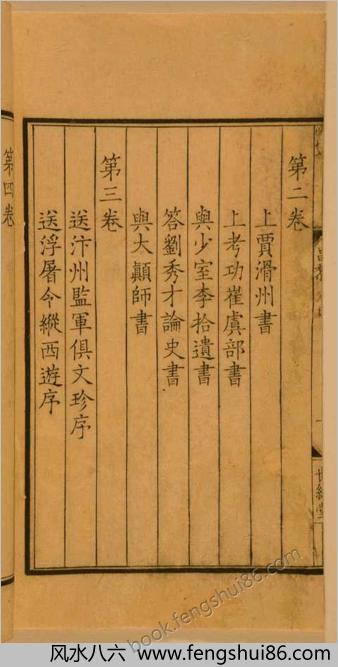 第二卷
上賈滑州書
上考功崔虞部書
與少室李拾遺書
答劉秀才論史書
與大顚師書
第三卷
送汴州監軍俱文珍序
送浮屠令縱西遊序
第四卷
book.fengshui86.com
风水八六-www.fengshui86.com